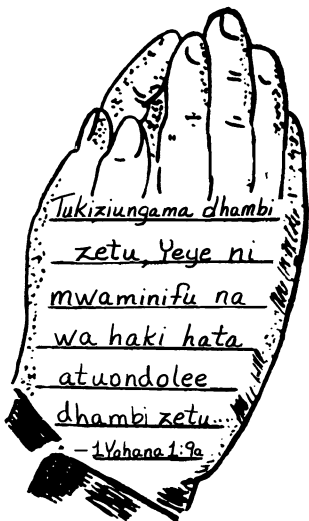 Tukiziungama dhambi
zetu, Yeye ni
mwaminifu na
wa haki hata
atuondolee
dhambi zetu...
-1Yohana 1:9a